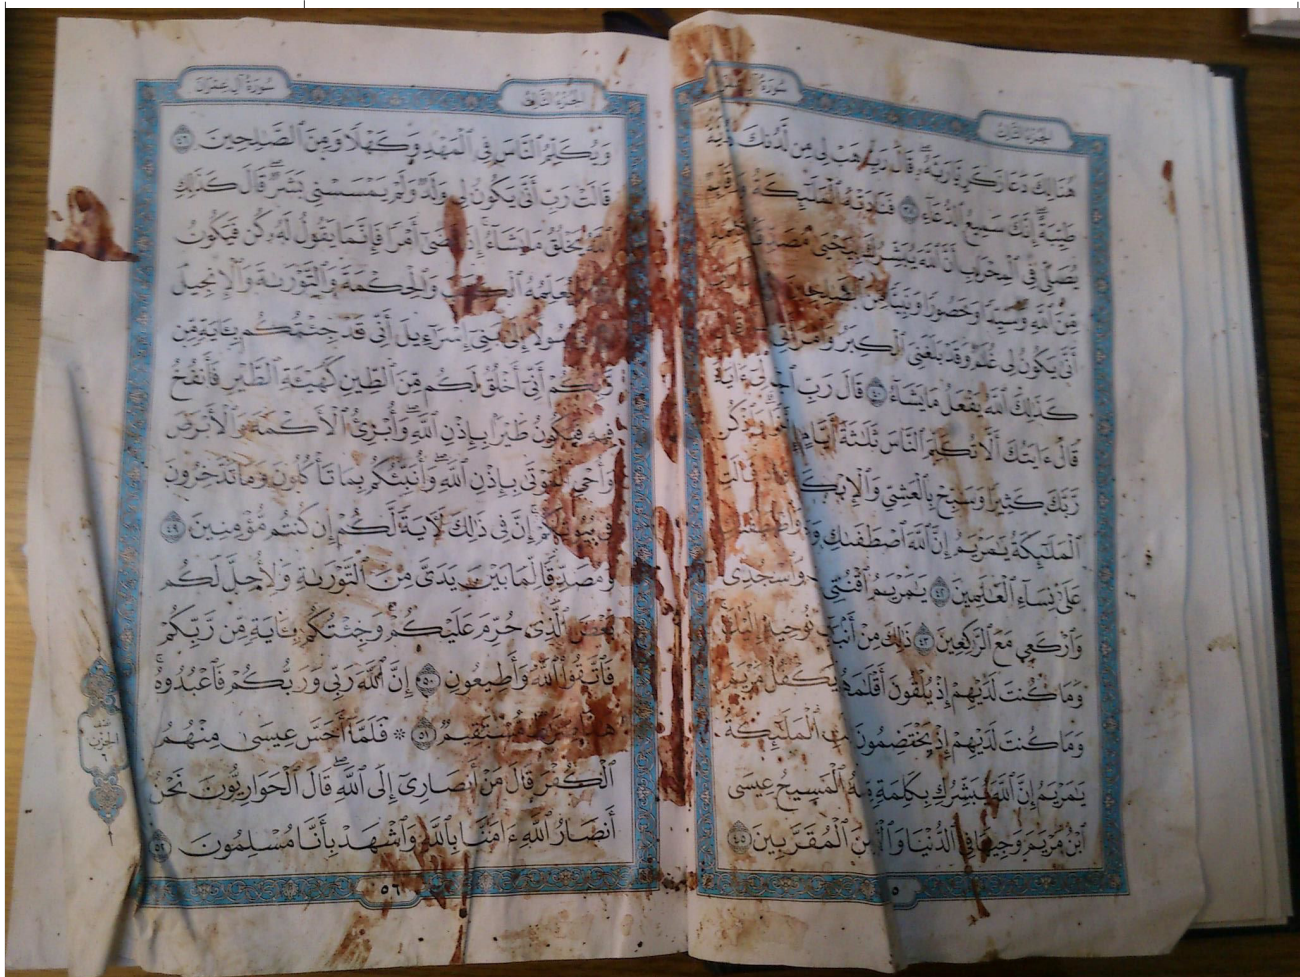 سُورَةُ آلِ عِمْرَانَ
الجُزْءُ الثَّالِثُ
هُنَالِكَ دَعَا زَكَرِيَّا رَبَّهُۥۖ قَالَ رَبِّ هَبْ لِى مِن لَّدُنكَ
طَيِّبَةًۖ إِنَّكَ سَمِيعُ ٱلدُّعَآءِ ٣٨ فَنَادَتْهُ ٱلْمَلَٰٓئِكَةُ وَهُوَ قَآئِمٌ
يُصَلِّى فِى ٱلْمِحْرَابِ أَنَّ ٱللَّهَ يُبَشِّرُكَ بِيَحْيَىٰ مُصَدِّقًۢا
مِّنَ ٱللَّهِ وَسَيِّدًا وَحَصُورًا وَنَبِيًّا مِّنَ ٱلصَّٰلِحِينَ
أَنَّىٰ يَكُونُ لِى غُلَٰمٌ وَقَدْ بَلَغَنِىَ ٱلْكِبَرُ وَٱمْرَأَتِى
كَذَٰلِكَ ٱللَّهُ يَفْعَلُ مَا يَشَآءُ ٤٠ قَالَ رَبِّ ٱجْعَل لِّىٓ ءَايَةًۖ
قَالَ ءَايَتُكَ أَلَّا تُكَلِّمَ ٱلنَّاسَ ثَلَٰثَةَ أَيَّامٍ وَٱذْكُر
رَّبَّكَ كَثِيرًا وَسَبِّحْ بِٱلْعَشِىِّ وَٱلْإِبْكَٰرِ قَالَتِ
ٱلْمَلَٰٓئِكَةُ يَٰمَرْيَمُ إِنَّ ٱللَّهَ ٱصْطَفَىٰكِ
عَلَىٰ نِسَآءِ ٱلْعَٰلَمِينَ ٤٢ يَٰمَرْيَمُ ٱقْنُتِى وَٱسْجُدِى
وَٱرْكَعِى مَعَ ٱلرَّٰكِعِينَ ٤٣ ذَٰلِكَ مِنْ أَنۢبَآءِ نُوحِيهِ إِلَيْكَۚ
وَمَا كُنتَ لَدَيْهِمْ إِذْ يُلْقُونَ أَقْلَٰمَهُمْ يَكْفُلُ مَرْيَمَ
وَمَا كُنتَ لَدَيْهِمْ إِذْ يَخْتَصِمُونَ ٱلْمَلَٰٓئِكَةُ
يَٰمَرْيَمُ إِنَّ ٱللَّهَ يُبَشِّرُكِ بِكَلِمَةٍ مِّنْهُ ٱلْمَسِيحُ عِيسَى
ٱبْنُ مَرْيَمَ وَجِيهًا فِى ٱلدُّنْيَا وَٱلْـَٔاخِرَةِ وَمِنَ ٱلْمُقَرَّبِينَ ٤٥
سُورَةُ آلِ عِمْرَانَ
الجُزْءُ الثَّالِثُ
وَيُكَلِّمُ ٱلنَّاسَ فِى ٱلْمَهْدِ وَكَهْلًا وَمِنَ ٱلصَّٰلِحِينَ ٤٦
قَالَتْ رَبِّ أَنَّىٰ يَكُونُ لِى وَلَدٌ وَلَمْ يَمْسَسْنِى بَشَرٌۖ قَالَ كَذَٰلِكِ
ٱللَّهُ يَخْلُقُ مَا يَشَآءُۚ إِذَا قَضَىٰٓ أَمْرًا فَإِنَّمَا يَقُولُ لَهُۥ كُن فَيَكُونُ
وَيُعَلِّمُهُ ٱلْكِتَٰبَ وَٱلْحِكْمَةَ وَٱلتَّوْرَىٰةَ وَٱلْإِنجِيلَ
وَرَسُولًا إِلَىٰ بَنِىٓ إِسْرَٰٓءِيلَ أَنِّى قَدْ جِئْتُكُم بِـَٔايَةٍ مِّن
رَّبِّكُمْ أَنِّىٓ أَخْلُقُ لَكُم مِّنَ ٱلطِّينِ كَهَيْـَٔةِ ٱلطَّيْرِ فَأَنفُخُ
فِيهِ فَيَكُونُ طَيْرًۢا بِإِذْنِ ٱللَّهِۖ وَأُبْرِئُ ٱلْأَكْمَهَ وَٱلْأَبْرَصَ
وَأُحْىِ ٱلْمَوْتَىٰ بِإِذْنِ ٱللَّهِۖ وَأُنَبِّئُكُم بِمَا تَأْكُلُونَ وَمَا تَدَّخِرُونَ
فِى بُيُوتِكُمْۚ إِنَّ فِى ذَٰلِكَ لَـَٔايَةً لَّكُمْ إِن كُنتُم مُّؤْمِنِينَ ٤٩
وَمُصَدِّقًا لِّمَا بَيْنَ يَدَىَّ مِنَ ٱلتَّوْرَىٰةِ وَلِأُحِلَّ لَكُم
بَعْضَ ٱلَّذِى حُرِّمَ عَلَيْكُمْۚ وَجِئْتُكُم بِـَٔايَةٍ مِّن رَّبِّكُمْ
فَٱتَّقُوا۟ ٱللَّهَ وَأَطِيعُونِ ٥٠ إِنَّ ٱللَّهَ رَبِّى وَرَبُّكُمْ فَٱعْبُدُوهُۚ
هَٰذَا صِرَٰطٌ مُّسْتَقِيمٌ ٥١ ۞ فَلَمَّآ أَحَسَّ عِيسَىٰ مِنْهُمُ
ٱلْكُفْرَ قَالَ مَنْ أَنصَارِىٓ إِلَى ٱللَّهِۖ قَالَ ٱلْحَوَارِيُّونَ نَحْنُ
أَنصَارُ ٱللَّهِ ءَامَنَّا بِٱللَّهِ وَٱشْهَدْ بِأَنَّا مُسْلِمُونَ ٥٢
٥٦